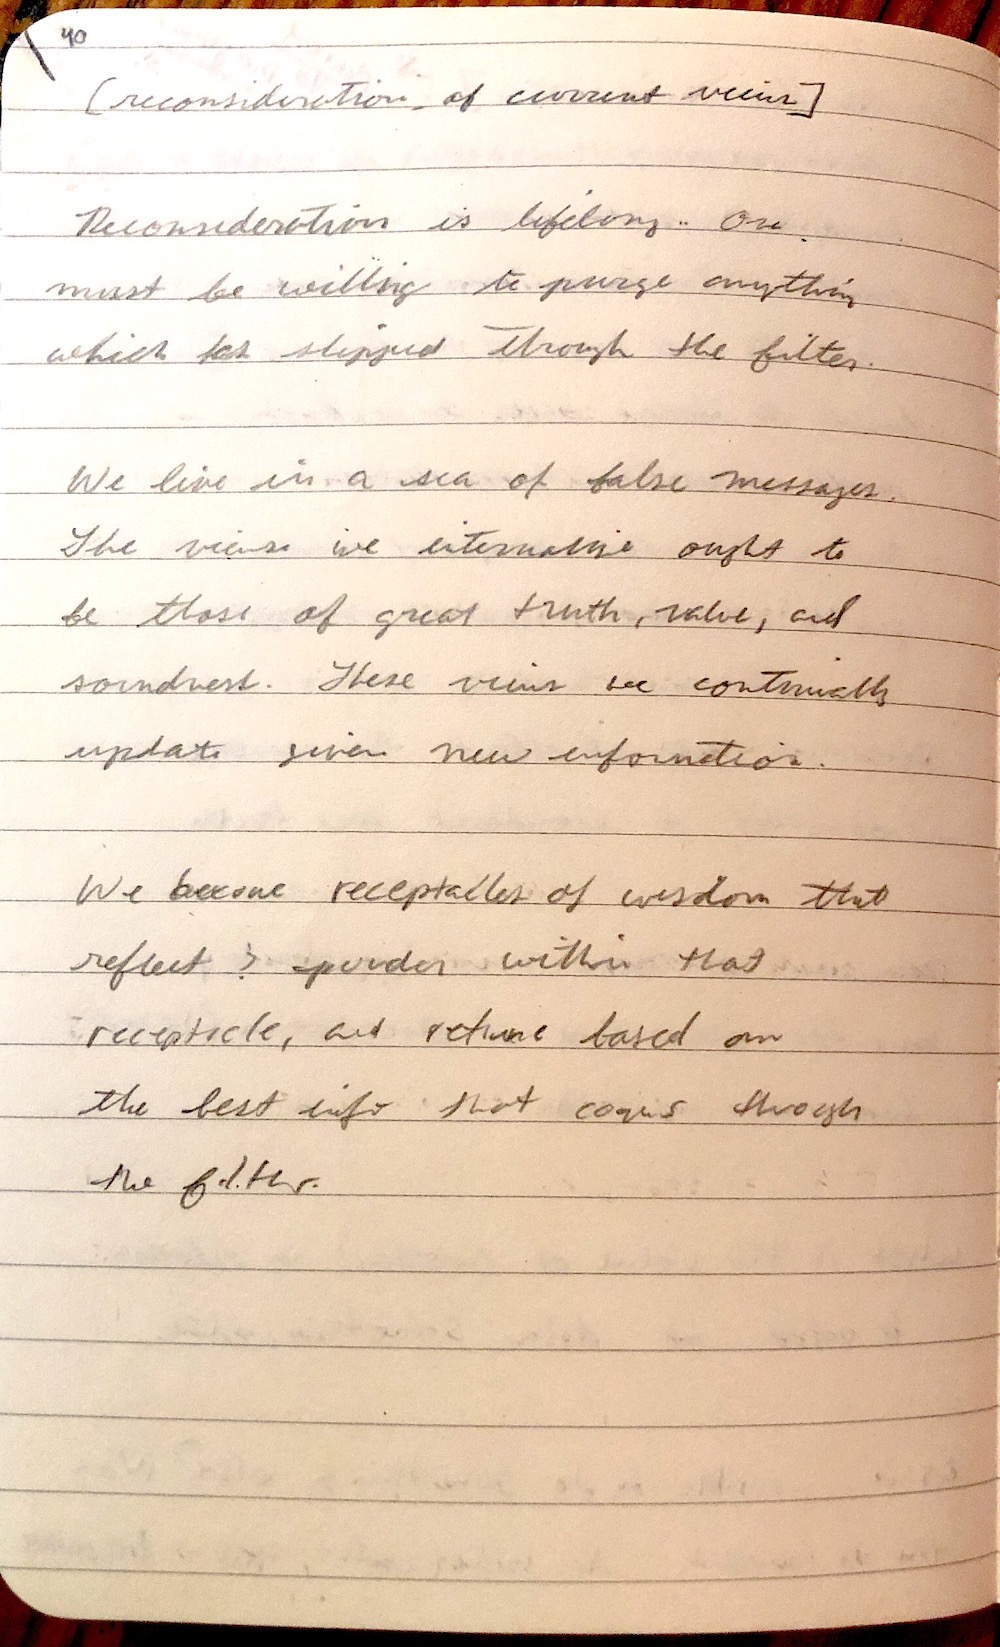 40
[reconsideration of current views]
Reconsideration is lifelong.. One
must be willing to purge anything
which has slipped through the filter.
We live in a sea of false messages.
The views we internalize ought to
be those of great truth, value, and
soundness. These views we continually
update given new information.
We become receptacles of wisdom that
reflect & ponder within that
receptacle, and retune based on
the best info that comes through
the filter.